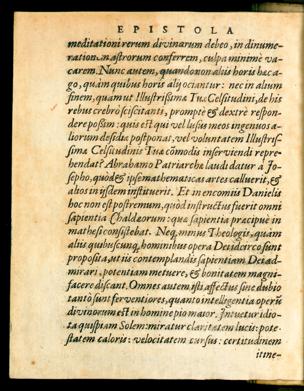 EPISTOLA
meditationi rerum divinarum debeo, in dinume-
ratione astrorum conferrem, culpa minime va-
carem. Nunc autem, quando non aliis horis hæc a-
go, quàm quibus horis alij ociantur: nec in alium
finem, quam ut Illustrissimæ Tuæ Celsitudini, de his
rebus crebro sciscitanti, promptè & dextrè respon-
dere possim: quis est qui vel lusus meos ingenuos a-
liorum desidiæ postponat, vel voluntatem Illustris-
simæ Celsitudinis Tuæ cõmodis inserviendi repre-
hendat? Abrahamo Patriarchæ laudi datur à Jo-
sepho, quòd & ipse mathematicas artes calluerit, &
alios in ijsdem instituerit. Et in encomiis Danielis
hoc non est postremum, quòd instructus fuerit omni
sapientia Chaldæorum: quæ sapientia præcipuè in
mathesi consistebat. Neq, minus Theologis, quàm
aliis quibuscunq, hominibus opera Dei idcirco sunt
proposita, ut iis contemplandis sapientiam Dei ad-
mirari, potentiam metuere, & bonitatem magni-
facere discant. Omnes autem isti affectus sine dubio
tantò sunt ferventiores, quantò intelligentia operũ
divinorum est in homine pio maior. Intuetur idio-
ta quispiam Solem: miratur claritatem lucis: pote-
statem caloris: velocitatem cursus: certitudinem
itine-